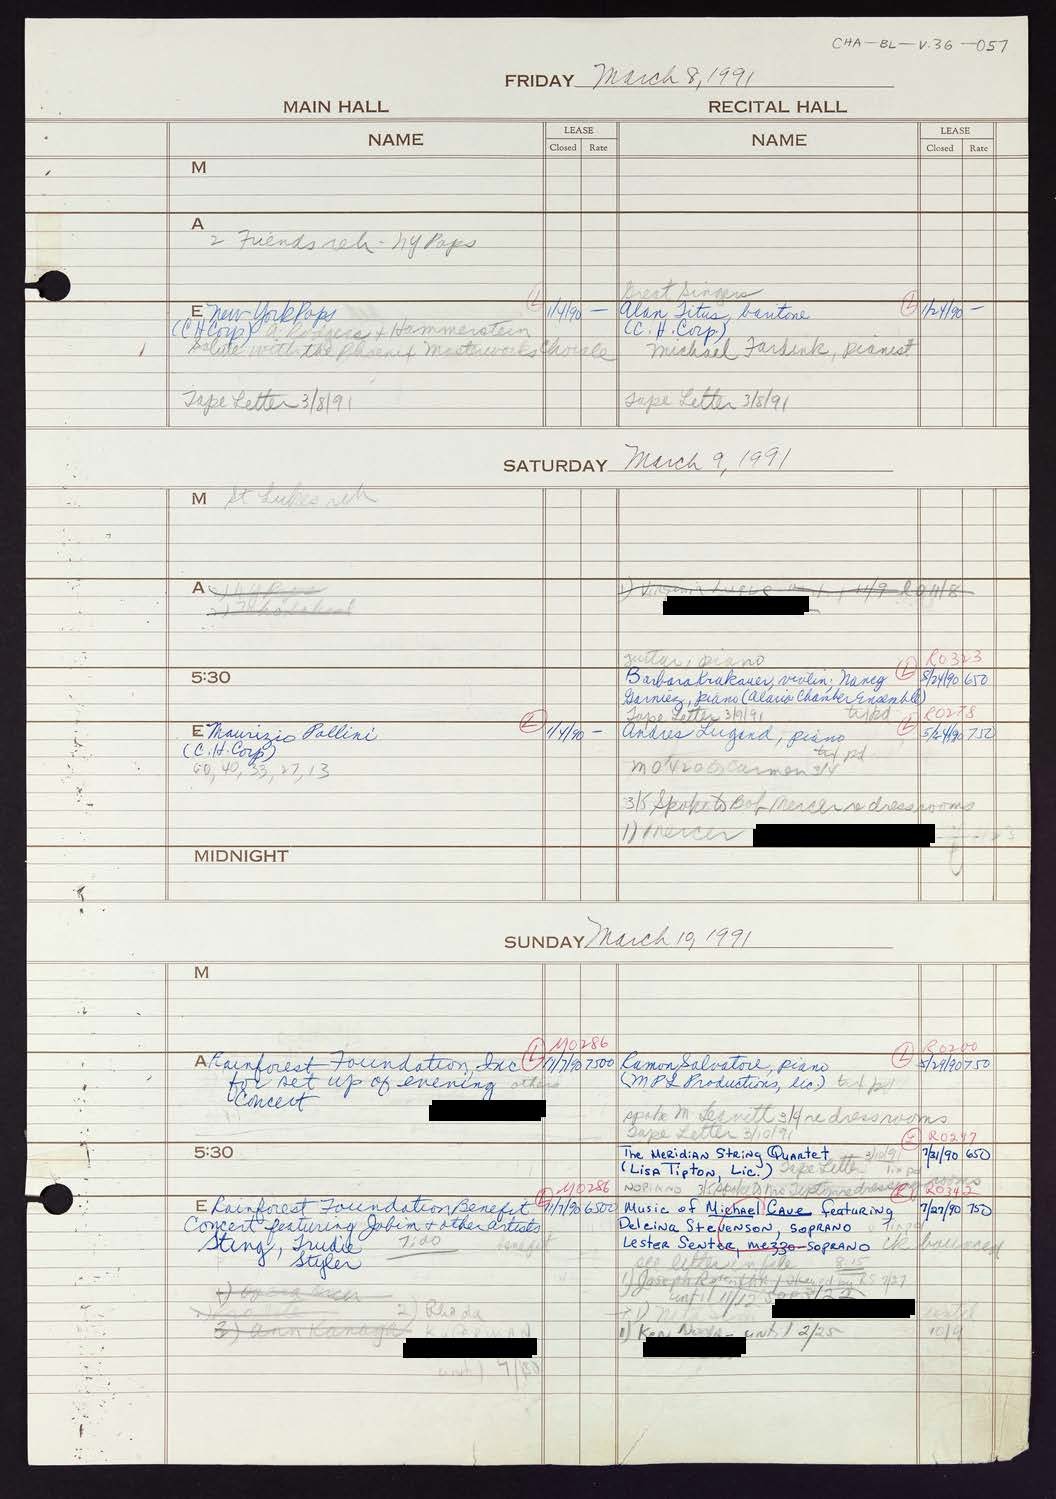 CHA-BL-V.36-057
FRIDAY March 8, 1991
MAIN HALL RECITAL HALL
NAME LEASE Closed Rate NAME LEASE Closed Rate
M
A
2 Friends reh - NY Pops
Great Singers
E New York Pops L 1/4/90 — Alan Titus, baritone L 1/24/90 —
(CH Corp) A Rodgers + Hammerstein (C.H. Corp)
Salute with the Phoenix Masterworks Chorale Michael Fardink, pianist
Tape Letter 3/8/91 Tape Letter 3/8/91
SATURDAY March 9, 1991
M St Lukes reh
A 1) NY Pops 1) Virginia 11/9 11/8
2)
guitar, piano R0323
5:30 Barbara Krakauer, violin; Nancy L 5/24/90 650
Garniez, piano (Alaria Chamber Ensemble)
Tape Letter 3/9/91 tax pd R0278
E Maurizio Pollini L 1/4/90 — Andres piano L 5/24/90 750
(C.H. Corp) tax pd
60, 40, 33, 27, 13 Carmen 3/4
3/5 Spoke to Bob Mercer re dressrooms
1) Mercer
MIDNIGHT
SUNDAY March 10, 1991
M
M0286 R0200
A Rainforest Foundation, Inc L 11/7/90 7500 Ramon Salvatore, piano L 5/29/90 750
for set up of evening others (MPL Productions, lic) tax pd
Concert
spoke M Leavitt 3/4 re dressrooms
Tape Letter 3/10/91
R0247
5:30 The Meridian String Quartet 3/10/91 L 7/31/90 650
(Lisa Tipton, Lic.) Tape Letter
NO PIANO 3/5 Spoke to Ms Tipton re dressing rooms
M0286 R0342
E Rainforest Foundation Benefit L 11/7/90 6500 Music of Michael Cave featuring L 7/27/90 750
Concert featuring Jobim + other artists Delcina Stevenson, soprano
Sting, Trudie 7:00 benefit Lester Senter, mezzo-soprano ck bounced
Styler see letter in file 8:15
1) Joseph 7/27
until 11/12
2) Rhoda
3) Ann Kanagh 1) Ken Noda - until 2/25 10/9
until 7/30